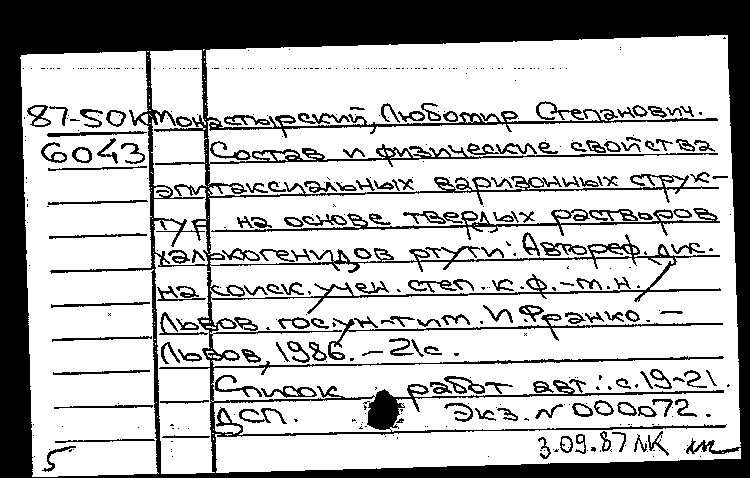 87-50К Монастырский, Любомир Степанович.
6043 Состав и физические свойства
эпитаксиальных варизонных струк-
тур на основе твердых растворов
халькогенидов ртути: Автореф. дис.
на соиск. учен. степ. к.ф.-м.н. /
Львов. гос. ун-т им. И. Франко. -
Львов, 1986. - 21с.
Список работ авт.: с.19-21.
ДСП. Экз. N 000072.
3.09.87 NK
5